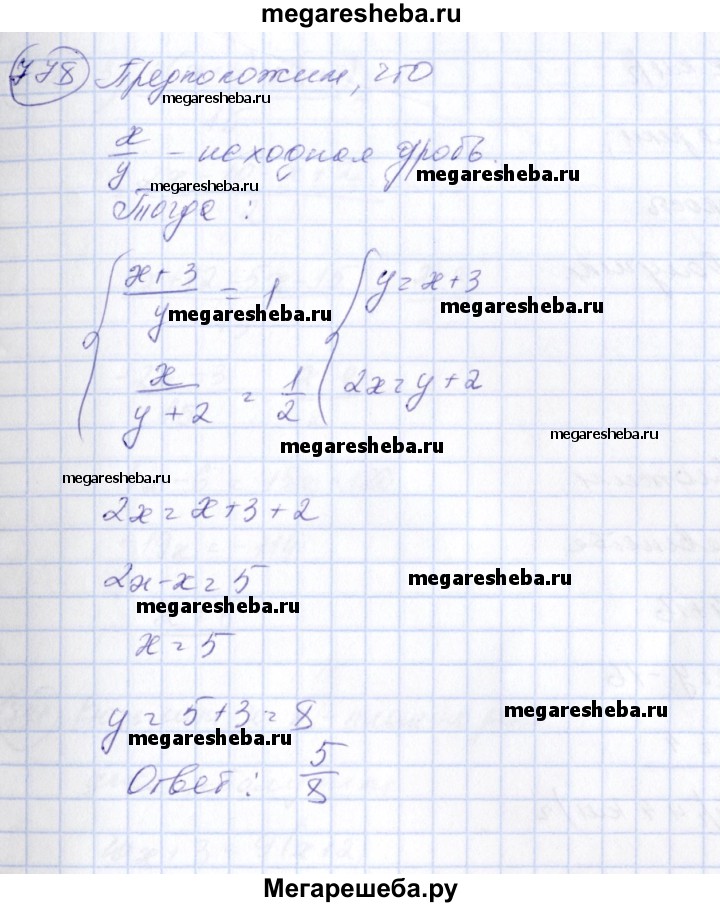 megaresheba.ru
778 Предположим, что
megaresheba.ru
x/y - исходная дробь.
megaresheba.ru
megaresheba.ru
Тогда :
{ (x+3)/y = 1 { y = x+3
megaresheba.ru
megaresheba.ru
x/(y+2) = 1/2 2x = y+2
megaresheba.ru
megaresheba.ru
megaresheba.ru
2x = x+3+2
2x-x = 5
megaresheba.ru
megaresheba.ru
x = 5
y = 5+3 = 8
megaresheba.ru
megaresheba.ru
Ответ: 5/8
Мегарешеба.ру